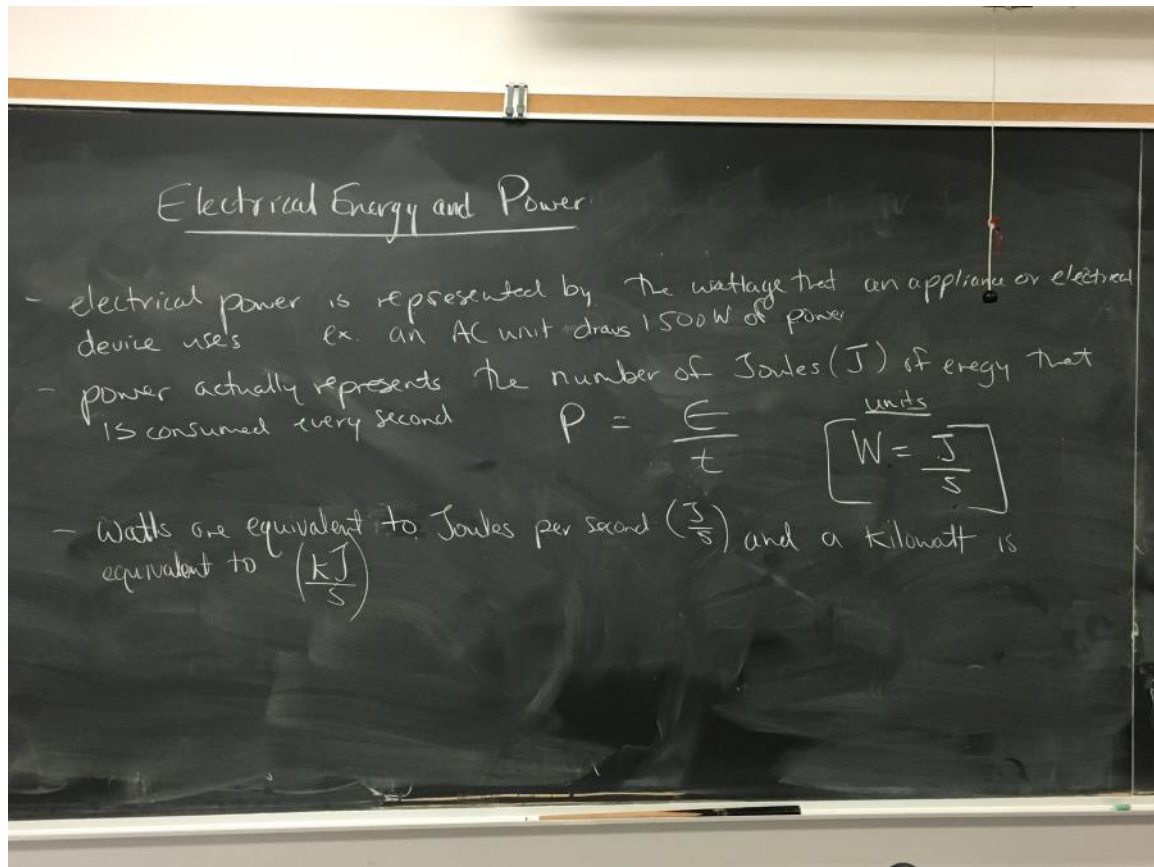 Electrical Energy and Power
- electrical power is represented by the wattage that an appliance or electrical
device uses ex. an AC unit draws 1500W of power
- power actually represents the number of Joules (J) of eregy that
is consumed every second P = E/t
units
W = J/s
- Watts are equivalent to Joules per second (J/s) and a kilowatt is
equivalent to (kJ/s)